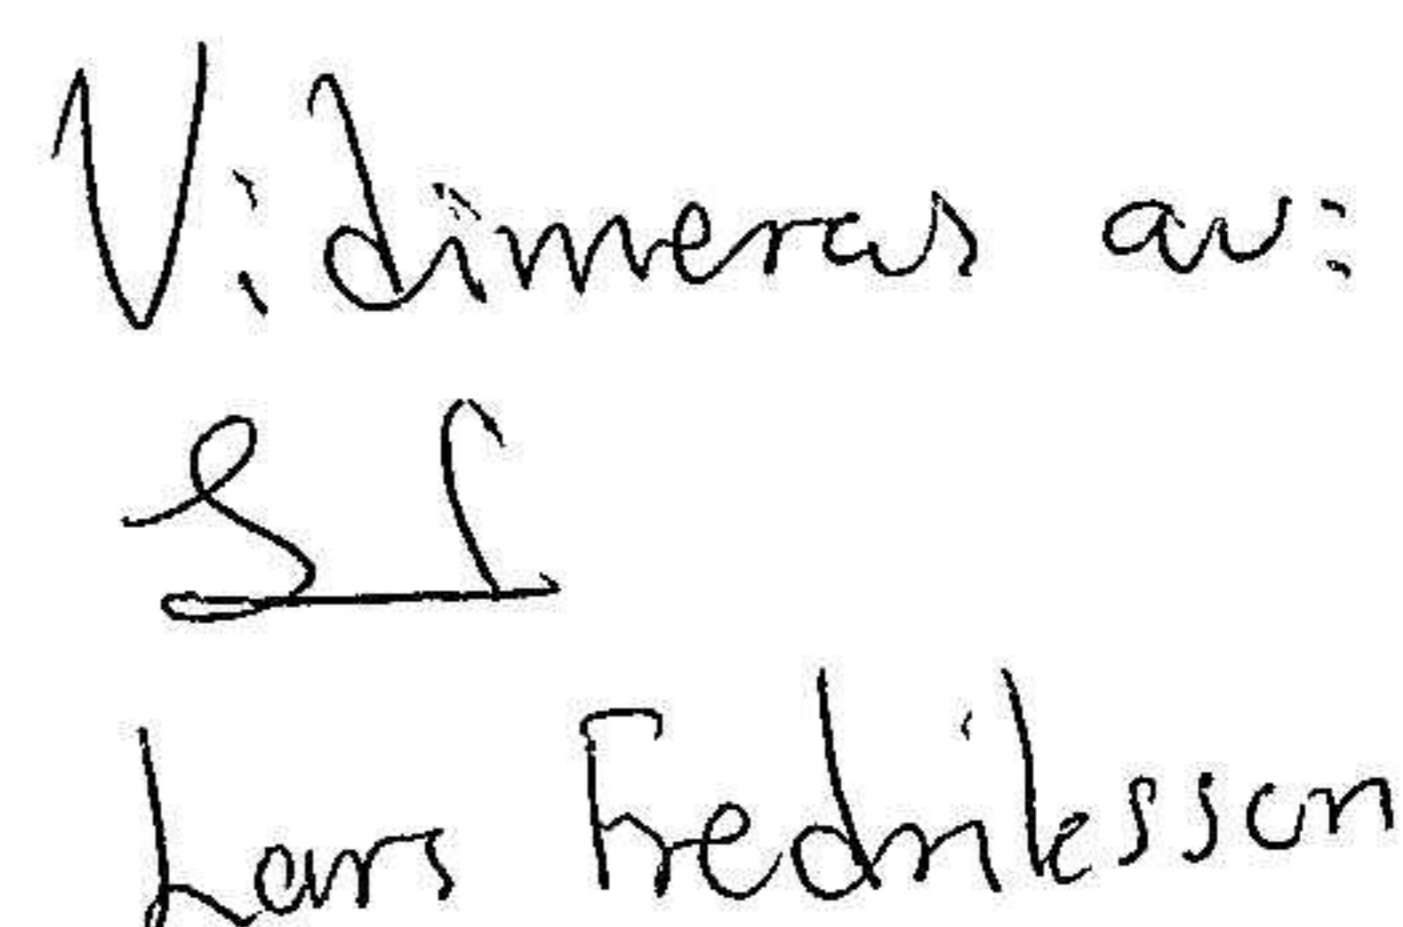 Vidimeras av:
Lars Fredriksson